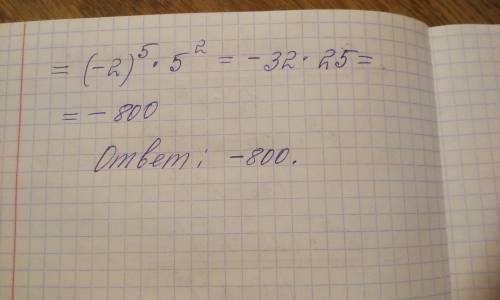 = (-2)⁵ · 5² = -32 · 25 =
= - 800
Ответ: -800.